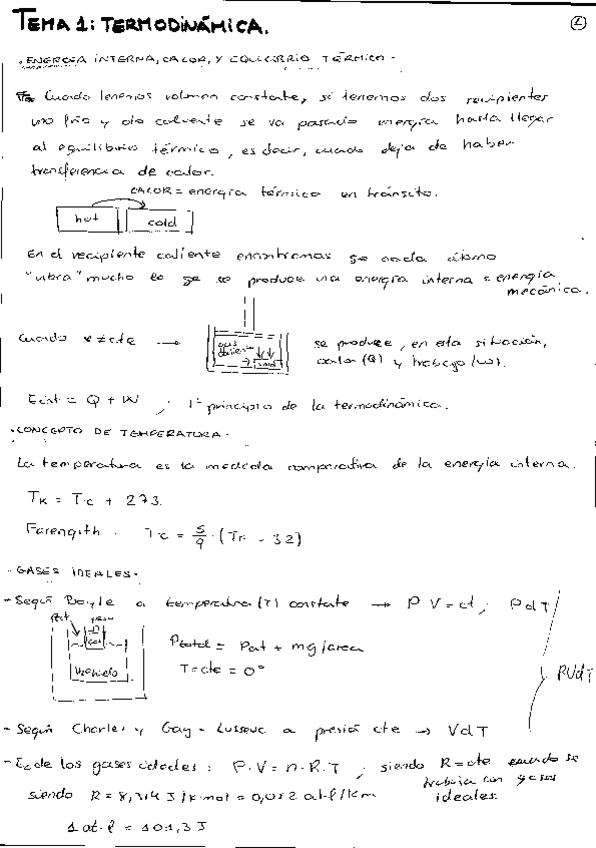 TEMA 1: TERMODINÁMICA.
·ENERGÍA INTERNA, CALOR, Y EQUILIBRIO TÉRMICO·
Cuando tenemos volumen constante, si tenemos dos recipientes
uno frío y otro caliente se va pasando energía hasta llegar
al equilibrio térmico, es decir, cuando deja de haber
transferencia de calor.
CALOR = energía térmica en tránsito.
hot cold
En el recipiente caliente encontramos que cada átomo
"vibra" mucho lo que produce una energía interna = energía
mecánica.
Cuando v ≠ cte → se produce, en esta situación,
calor (Q) y trabajo (W).
Eint = Q + W ; 1º principio de la termodinámica.
·CONCEPTO DE TEMPERATURA·
La temperatura es la medida comparativa de la energía interna.
TK = Tc + 273.
Farengith. Tc = 5/9 · (TF - 32)
·GASES IDEALES·
- Según Boyle a temperatura (T) constante → P V = ct ; PαT
Pat
gas
Ptotal = Pat + mg/area
T = cte = 0°
PVαT
- Según Charles y Gay-Lussac a presió cte → VαT
- Ec de los gases ideales: P·V = n·R·T ; siendo R = cte cuando se
trabaja con gases
ideales.
siendo R = 8,314 J/K·mol = 0,082 at·l/K·m
1 at·l = 101,3 J